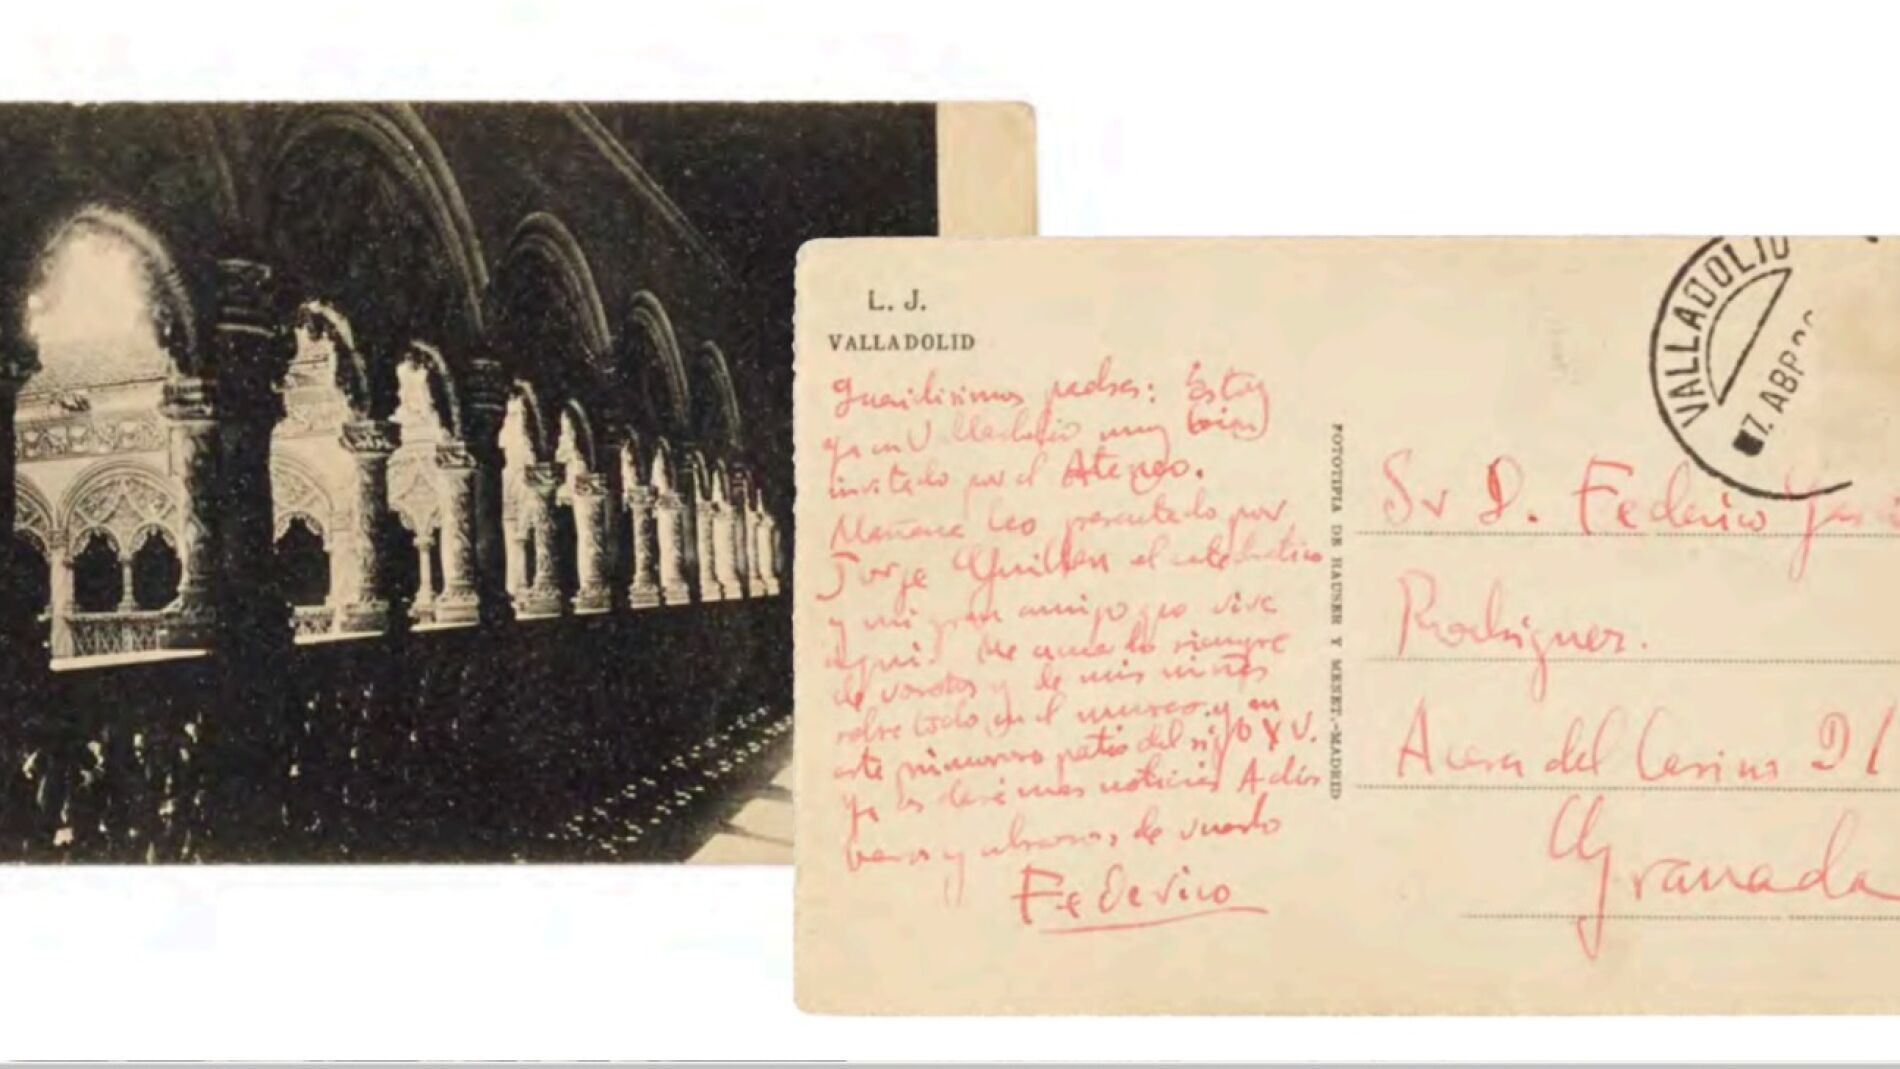 L. J.
VALLADOLID
Queridisimos padres: Estoy
ya en Valladolid muy bien
invitado por el Ateneo.
Mañana leo presentado por
Jorge Guillen el catedratico
y mi gran amigo que vive
aqui. Me acuerdo siempre
de vosotros y de mis niñas
sobre todo en el museo y en
este primoroso patio del siglo XV.
Ya os daré mas noticias Adios
besos y abrazos de vuestro
Federico
FOTOTIPIA DE HAUSER Y MENET.-MADRID
VALLADOLID
7. ABR
Sr D. Federico
Rodriguez.
Acera del Casino
Granada